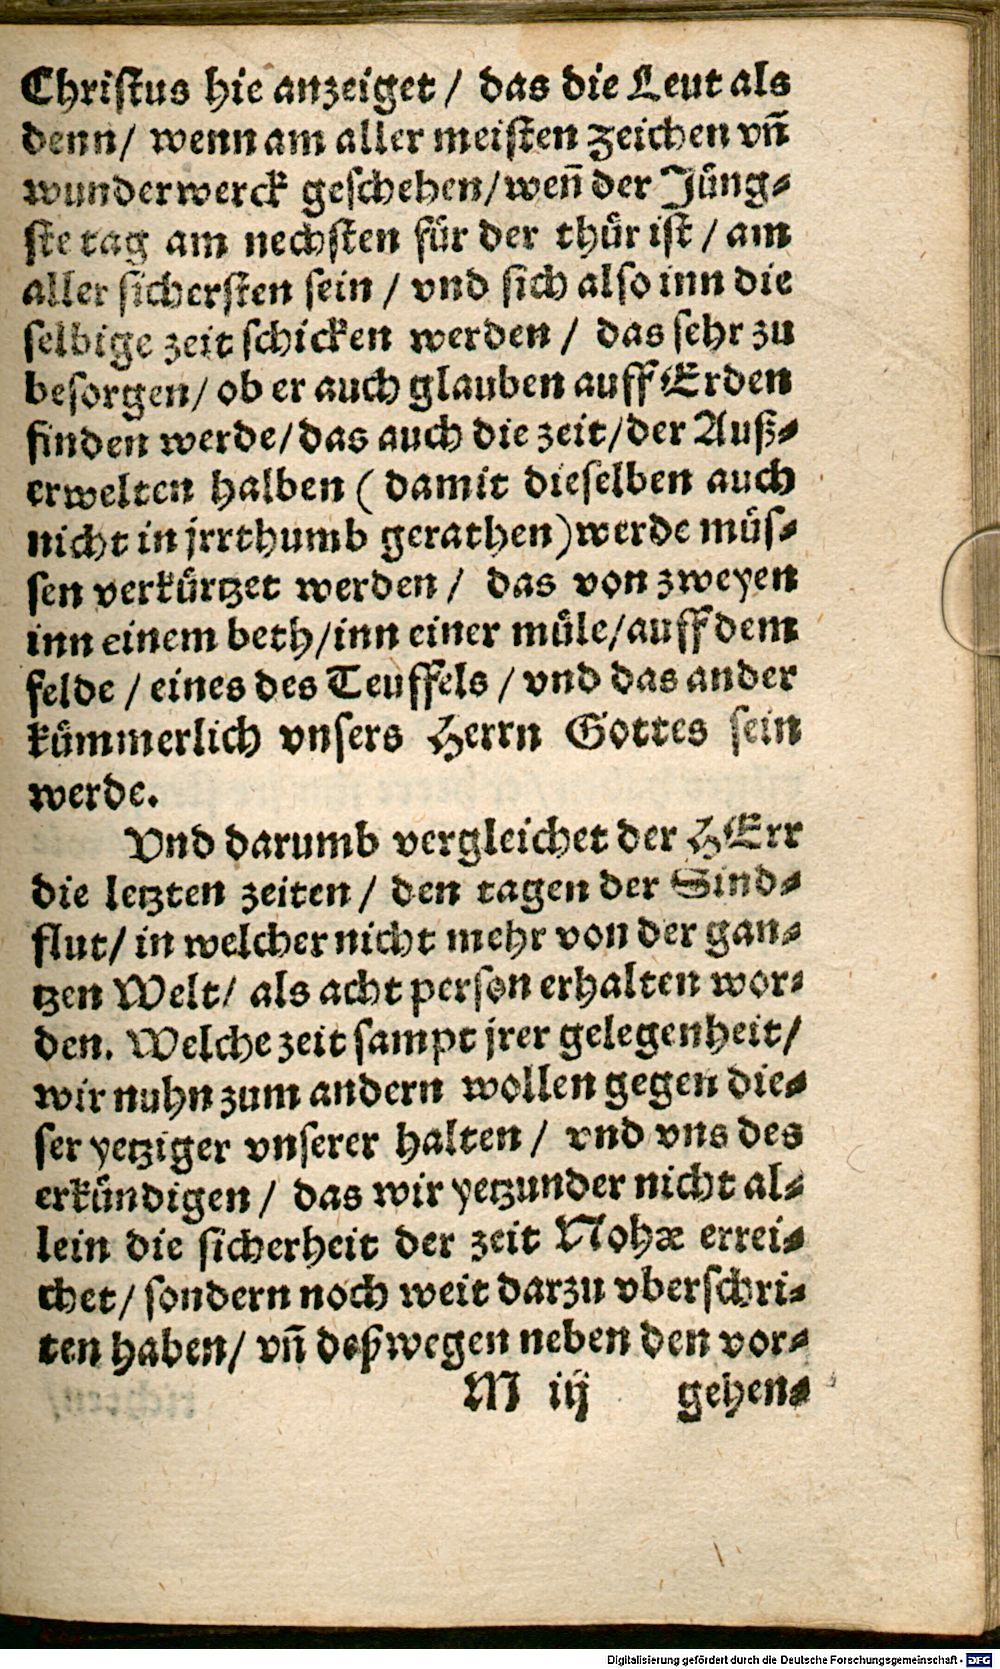 Christus hie anzeiget / das die Leut als
denn / wenn am aller meisten zeichen vñ
wunderwerck geschehen / weñ der Jüng⸗
ste tag am nechsten für der thür ist / am
aller sichersten sein / vnd sich also inn die
selbige zeit schicken werden / das sehr zu
besorgen / ob er auch glauben auff Erden
finden werde / das auch die zeit / der Auß⸗
erwelten halben ( damit dieselben auch
nicht in jrrthumb gerathen ) werde müs⸗
sen verkürtzet werden / das von zweyen
inn einem beth / inn einer müle / auff dem
felde / eines des Teuffels / vnd das ander
kümmerlich vnsers Herrn Gottes sein
werde.
Vnd darumb vergleichet der HErr
die letzten zeiten / den tagen der Sind⸗
flut / in welcher nicht mehr von der gan⸗
tzen Welt / als acht person erhalten wor⸗
den. Welche zeit sampt jrer gelegenheit /
wir nuhn zum andern wollen gegen die⸗
ser yetziger vnserer halten / vnd vns des
erkündigen / das wir yetzunder nicht al⸗
lein die sicherheit der zeit Nohæ errei⸗
chet / sondern noch weit darzu vberschri⸗
ten haben / vñ deßwegen neben den vor⸗
M iij gehen⸗
Digitalisierung gefördert durch die Deutsche Forschungsgemeinschaft - DFG